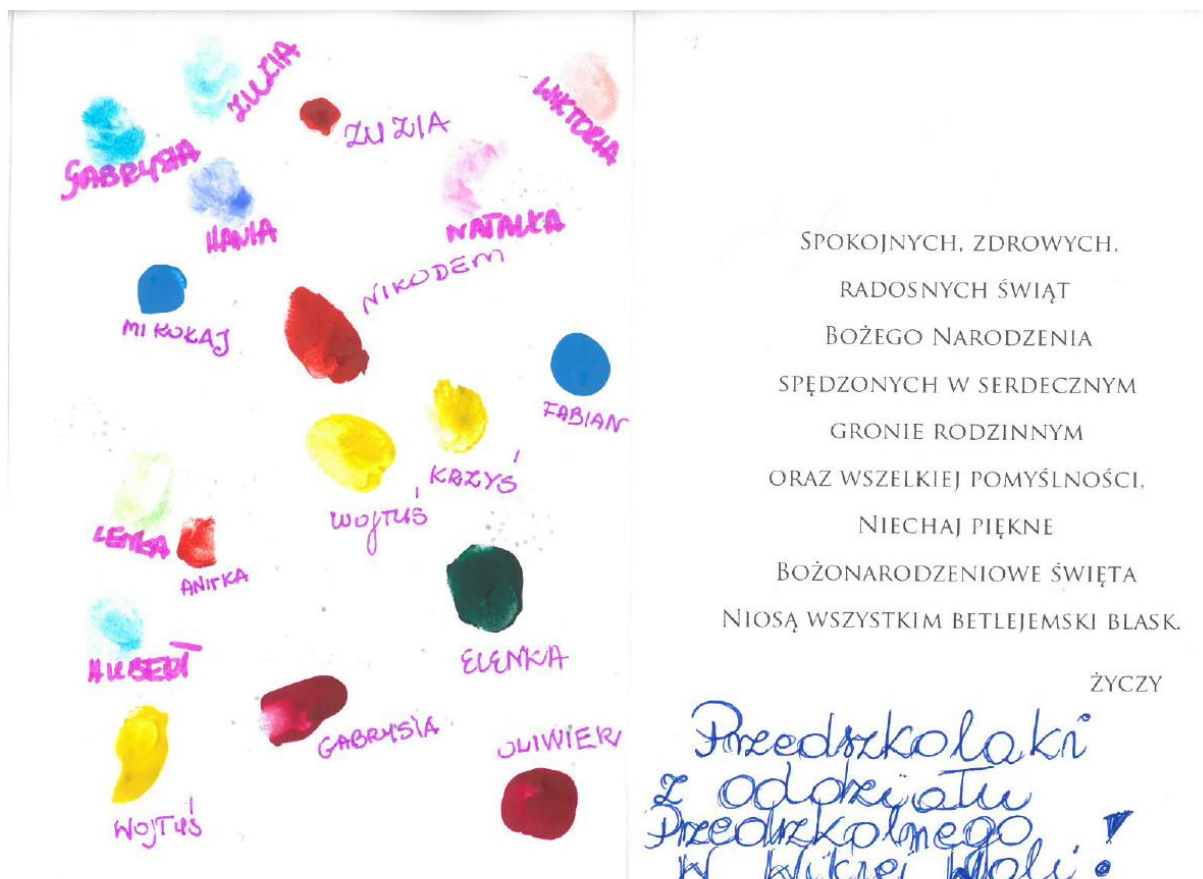 ZUZIA
WIKTORIA
GABRYSIA
ZUZIA
HANIA
NATALKA
NIKODEM
MIKOŁAJ
FABIAN
KRZYŚ
WOJTUŚ
LENKA
ANITKA
HUBERT
ELENKA
GABRYSIA
OLIWIER
WOJTUŚ
SPOKOJNYCH, ZDROWYCH,
RADOSNYCH ŚWIĄT
BOŻEGO NARODZENIA
SPĘDZONYCH W SERDECZNYM
GRONIE RODZINNYM
ORAZ WSZELKIEJ POMYŚLNOŚCI,
NIECHAJ PIĘKNE
BOŻONARODZENIOWE ŚWIĘTA
NIOSĄ WSZYSTKIM BETLEJEMSKI BLASK.
ŻYCZY
Przedszkolaki
z oddziału
Przedszkolnego
w Wilczej Woli!